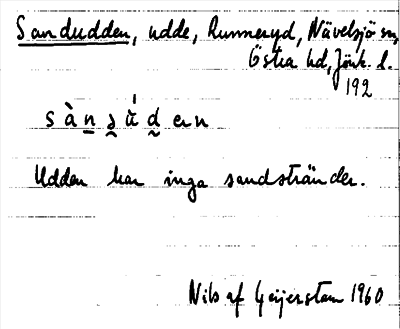 Sandudden, udde, Runneryd, Nävelsjö sn,
Östra hd, Jönk. l.
192
Udden har inga sandstränder.
Nils af Geijerstam 1960